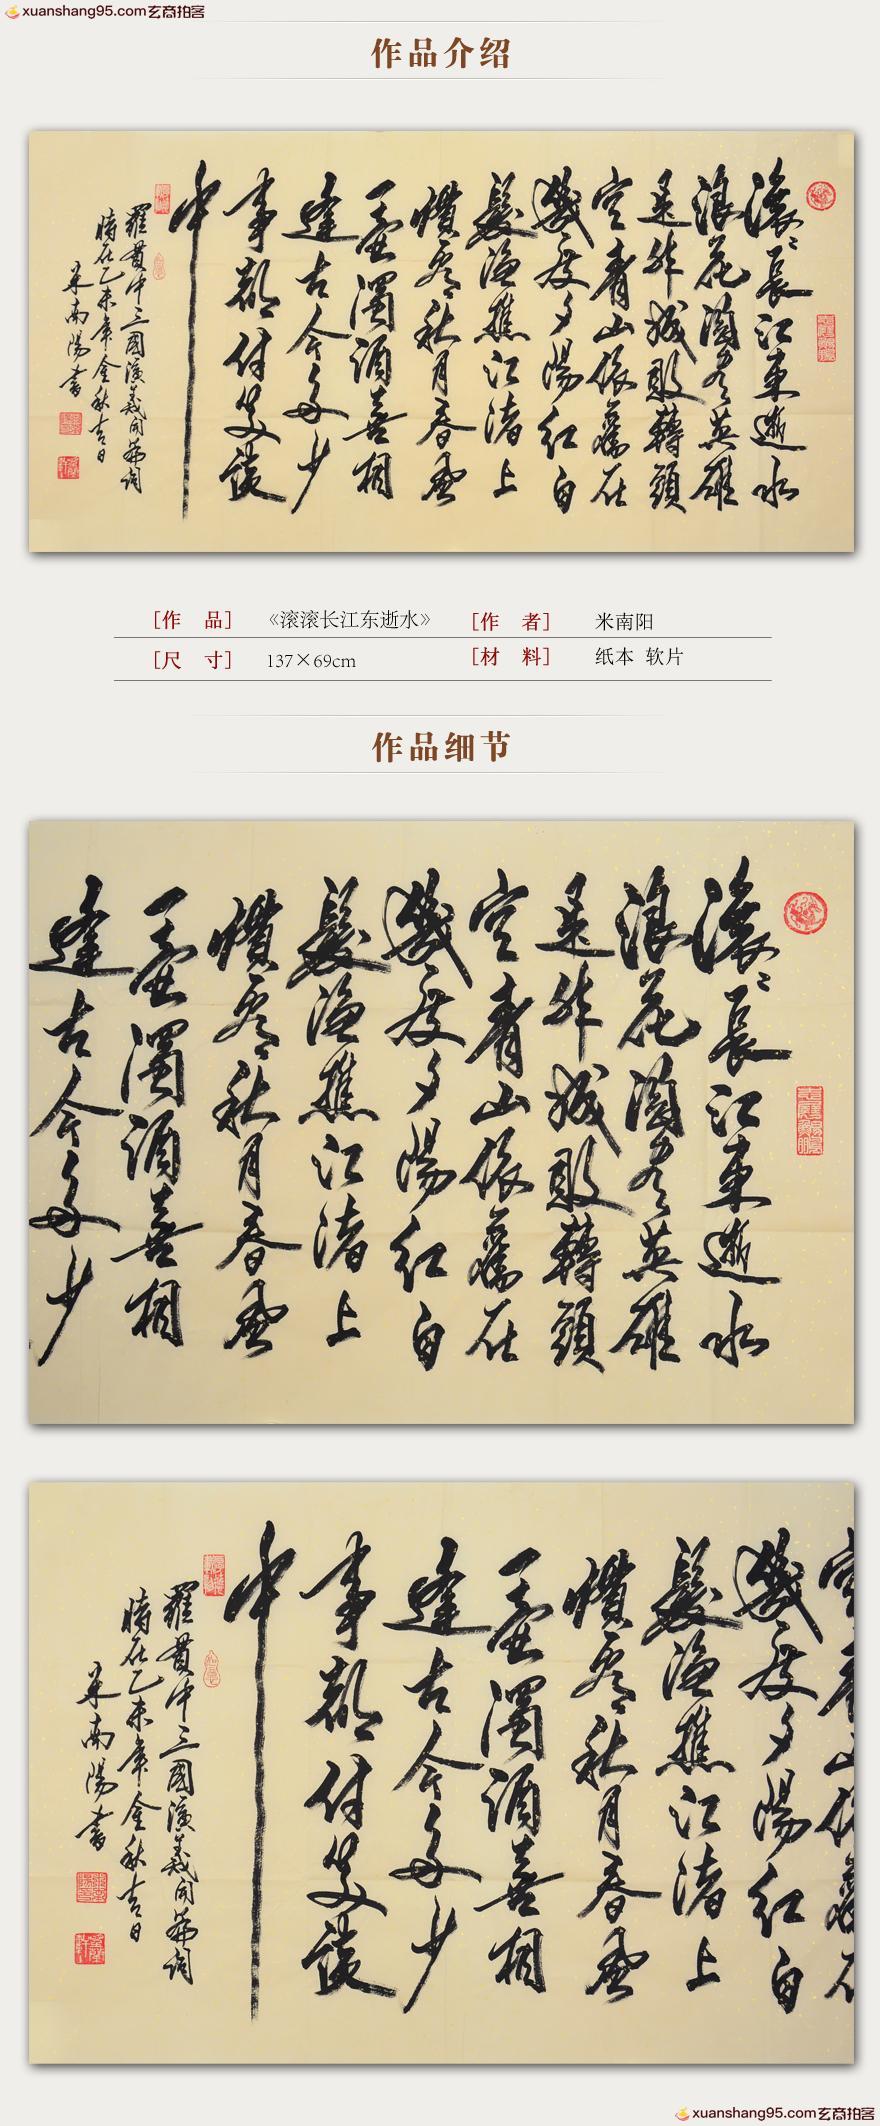 xuanshang95.com玄商拍客
作品介绍
滚〻長江東逝水
浪花淘盡英雄
是非成敗轉頭
空青山依舊在
幾度夕陽紅白
髮漁樵江渚上
慣看秋月春風
一壺濁酒喜相
逢古今多少
事都付笑談
中
羅貫中三國演義開篇詞
時在乙未年金秋吉日
米南陽書
[作 品] 《滚滚长江东逝水》 [作 者] 米南阳
[尺 寸] 137×69cm [材 料] 纸本 软片
作品细节
滚〻長江東逝水
浪花淘盡英雄
是非成敗轉頭
空青山依舊在
幾度夕陽紅白
髮漁樵江渚上
慣看秋月春風
一壺濁酒喜相
逢古今多少
空青山依舊在
幾度夕陽紅白
髮漁樵江渚上
慣看秋月春風
一壺濁酒喜相
逢古今多少
事都付笑談
中
羅貫中三國演義開篇詞
時在乙未年金秋吉日
米南陽書
xuanshang95.com玄商拍客